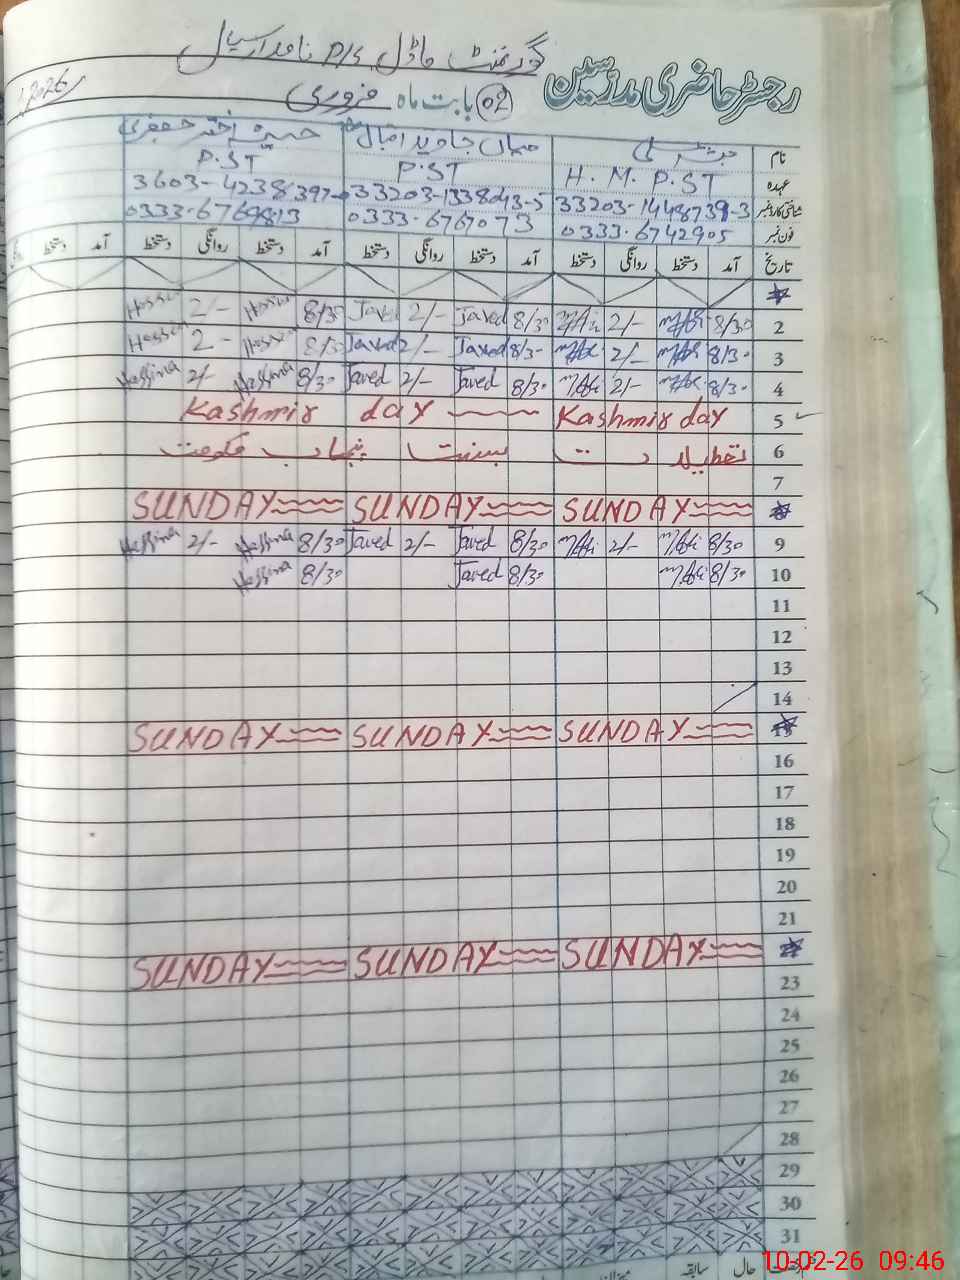 گورنمنٹ ماڈل P/S نامدار سیال
رجسٹر حاضری مدرسین
02 بابت ماہ فروری 2026
نام جاوید اقبال حسینہ اختر جعفری
عہدہ H.M. P.ST P.ST P.ST
شناختی کارڈ نمبر 33203-1448739-3 33203-1338043-5
فون نمبر 0333.6742905 0333.6767073 0333-6769813
تاریخ آمد دستخط روانگی دستخط آمد دستخط روانگی دستخط آمد دستخط روانگی دستخط آمد دستخط
2 8/30 2/- 8/30 Javed 2/- Javed 8/30 2/-
3 8/30 2/- 8/3- Javed 2/- Javed 8/30 2-
4 8/30 2/- 8/30 Javed 2/- Javed 8/30 Hassina 2/- Hassina
5 Kashmir day Kashmir day
6 تعطیل بسنت پنجاب حکومت
7
SUNDAY SUNDAY SUNDAY
9 8/30 2/- 8/30 Javed 2/- Javed 8/30 Hassina 2/- Hassina
10 8/30 8/30 Javed 8/30 Hassina
11
12
13
14
15 SUNDAY SUNDAY SUNDAY
16
17
18
19
20
21
SUNDAY SUNDAY SUNDAY
23
24
25
26
27
28
29
30
31
حال سابقہ
10-02-26 09:46